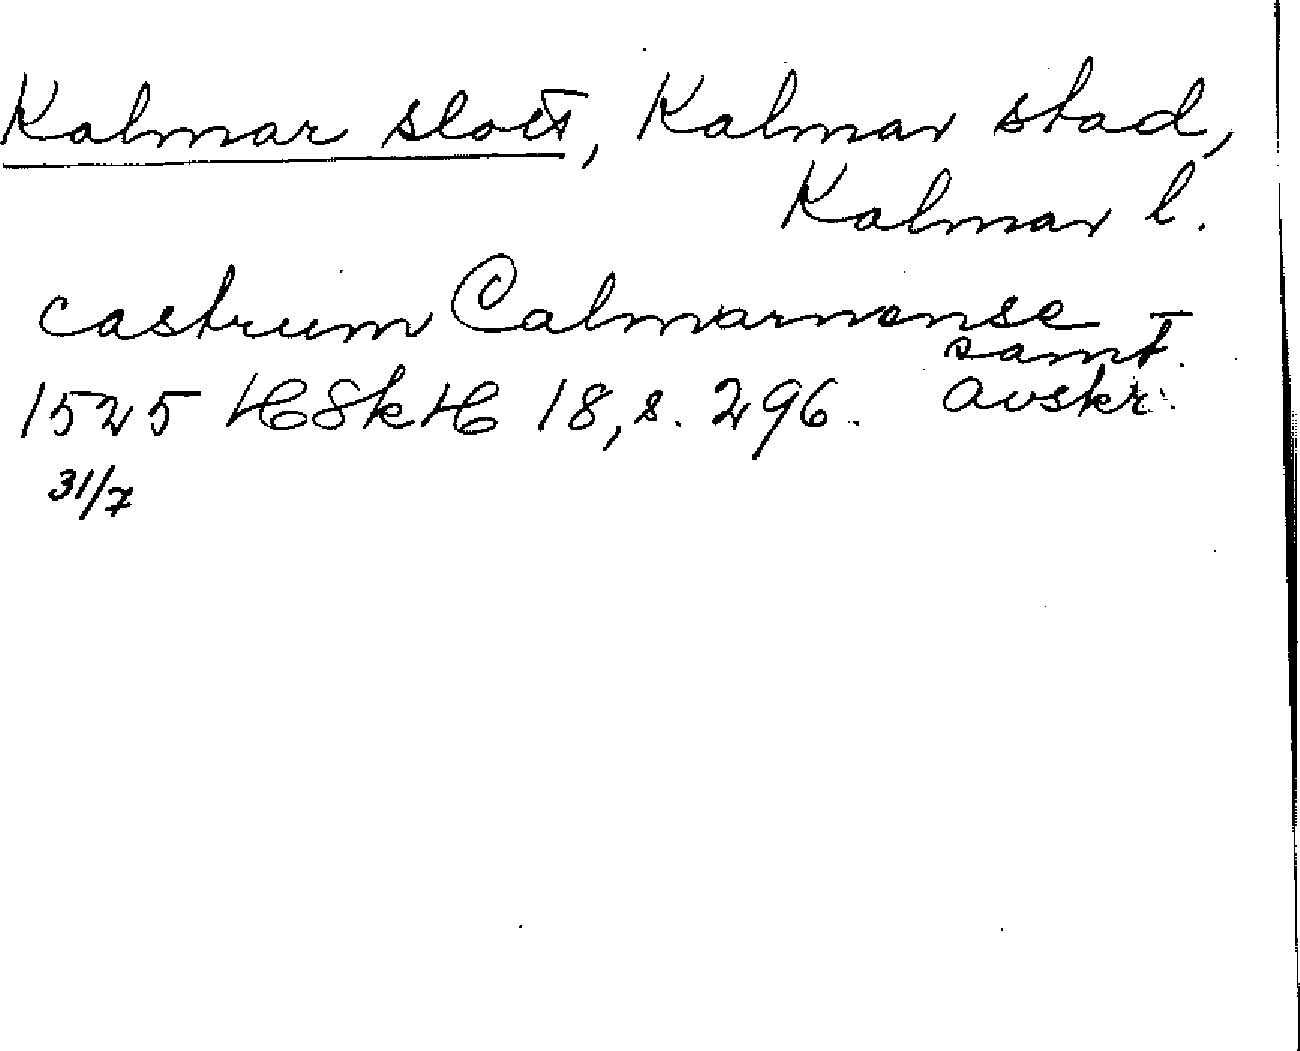 Kalmar slott, Kalmar stad,
Kalmar l.
castrum Calmarnense
samt.
1525 HSkH 18, s. 296. avskr.
31/7